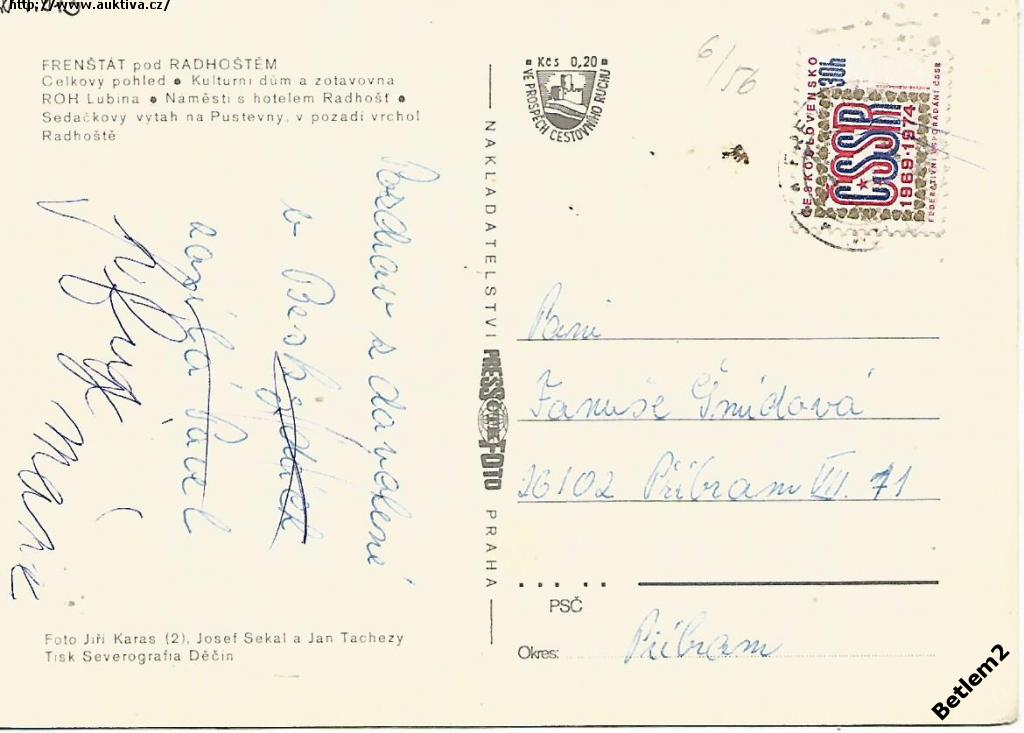 http://www.auktiva.cz/
FRENŠTÁT pod RADHOŠTĚM
Celkový pohled • Kulturní dům a zotavovna
ROH Lubina • Náměstí s hotelem Radhošť •
Sedačkový výtah na Pustevny, v pozadí vrchol
Radhoště
Pozdrav z dovolené
v Beskydách
zasílá Pavel
Marie
Foto Jiří Karas (2), Josef Sekal a Jan Tachezy
Tisk Severografia Děčín
NAKLADATELSTVÍ PRESSFOTO PRAHA
Kčs 0,20
VE PROSPĚCH CESTOVNÍHO RUCHU
6/56
ČESKOSLOVENSKO
30h
ČSSR
1969·1974
FEDERATIVNÍ USPOŘÁDÁNÍ ČSSR
Paní
Januše Šmídová
26102 Příbram VII. 71
PSČ
Okres: Příbram
Betlem2